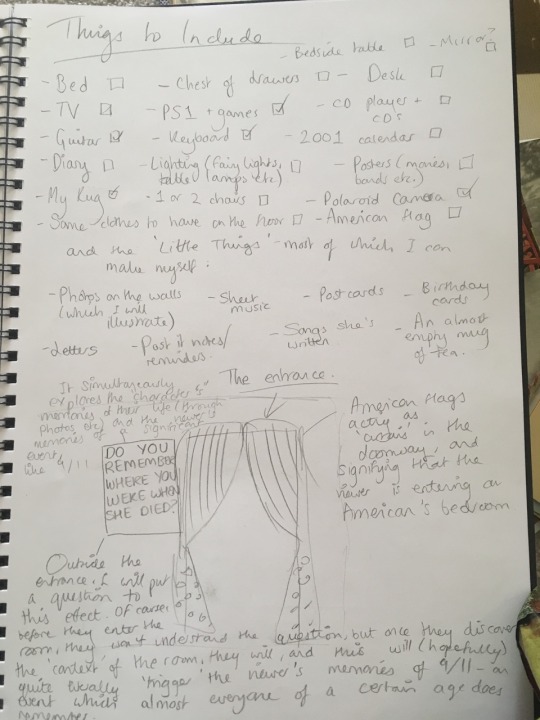 Things to Include
- Bedside table - Mirror?
- Bed - Chest of drawers - Desk
- TV - PS1 + games - CD player + CDs
- Guitar - Keyboard - 2001 calendar
- Diary - Lighting (Fairy lights, table lamps etc) - Posters (movies, bands etc.)
- My Rug - 1 or 2 chairs - Polaroid Camera
- Some clothes to have on the floor - American flag
and the 'Little Things' - most of which I can
make myself:
- Photos on the walls (which I will illustrate) - Sheet music - Postcards - Birthday cards
- Letters - Post it notes/reminders. - Songs she's written - An almost empty mug of tea.
The entrance.
It simultaneously
explores the character's
memories of their life (through
photos etc) and the viewer's
memories of a significant
event,
like 9/11
DO YOU
REMEMBER
WHERE YOU
WERE WHEN
SHE DIED?
American flags
acting as
in the
doorway, and
signifying that the
viewer is entering an
American's bedroom
Outside the
entrance, I will put
a question to
this effect. Of course
before they enter the
room, they won't understand the question, but once they discover
the 'context' of the room, they will, and this will (hopefully)
quite literally 'trigger' the viewer's memories of 9/11 - an
event which almost everyone of a certain age does
remember.